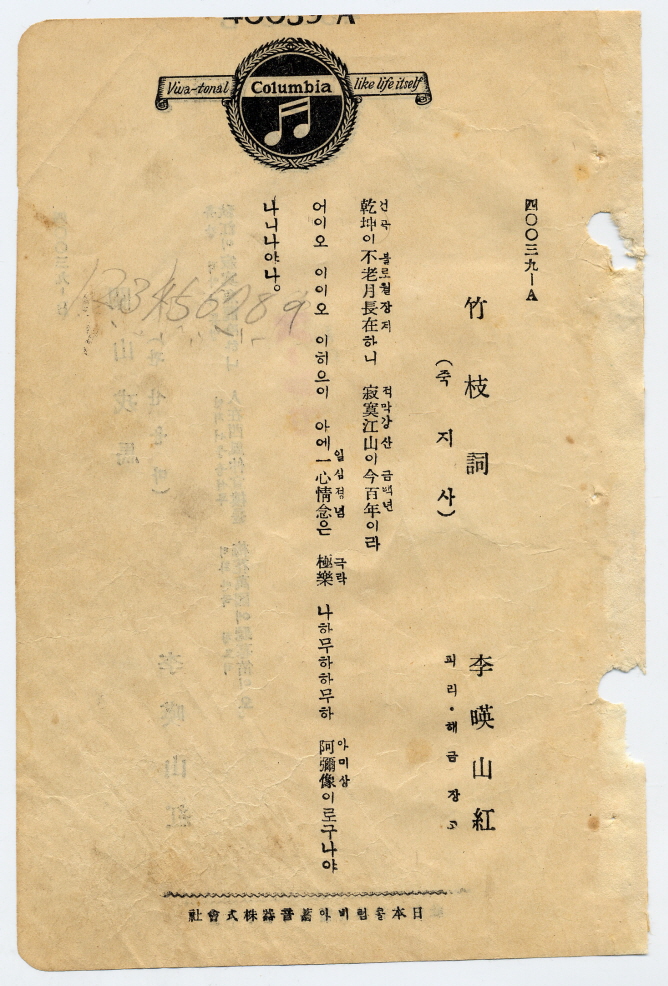 40039-A
Viva-tonal Columbia like life itself
四〇〇三九—A
竹枝詞
(죽지사)
李暎山紅
피리·해금 장고
건곤 불로월장재
乾坤이不老月長在하니 寂寞江山이今百年이라
적막강산 금백년
어이오 이이오 이히으이 아에一心情念은 極樂 나하무하하무하 阿彌像이로구나야
일심정념 극락 아미상
나니나야나。
123456789
日本콜럼비아蓄音器株式會社